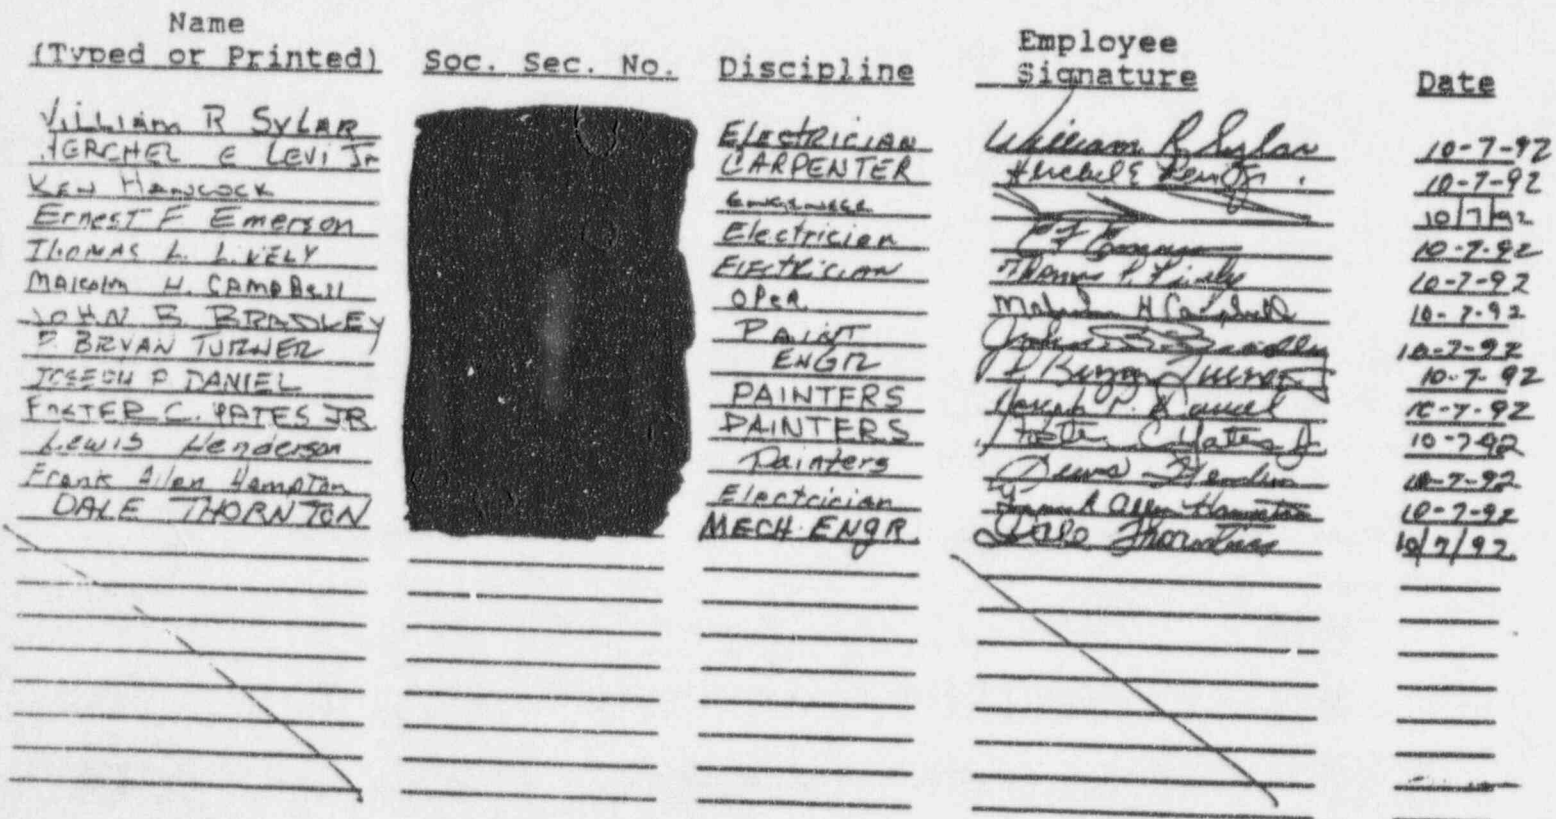 Name
(Typed or Printed) Soc. Sec. No. Discipline Employee Signature Date
William R Sylar ELECTRICIAN William R Sylar 10-7-92
HERCHEL E LEVI Jr CARPENTER Herchel E Levi Jr. 10-7-92
Ken Hancock Engineer 10/7/92
Ernest F Emerson Electrician E F Emerson 10-7-92
Thomas L. Lively Electrician Thomas L. Lively 10-7-92
Malcolm H. Campbell Oper. Malcolm H Campbell 10-7-92
JOHN B BRADLEY PAINT John B Bradley 10-7-92
P. BRYAN TURNER ENGR P Bryan Turner 10-7-92
JOSEPH P DANIEL PAINTERS Joseph P. Daniel 10-7-92
FOSTER C. YATES JR PAINTERS Foster C Yates Jr 10-7-92
Lewis Henderson Painters Lewis Henderson 10-7-92
Frank Allen Hampton Electrician Frank Allen Hampton 10-7-92
DALE THORNTON MECH ENGR Dale Thornton 10/7/92